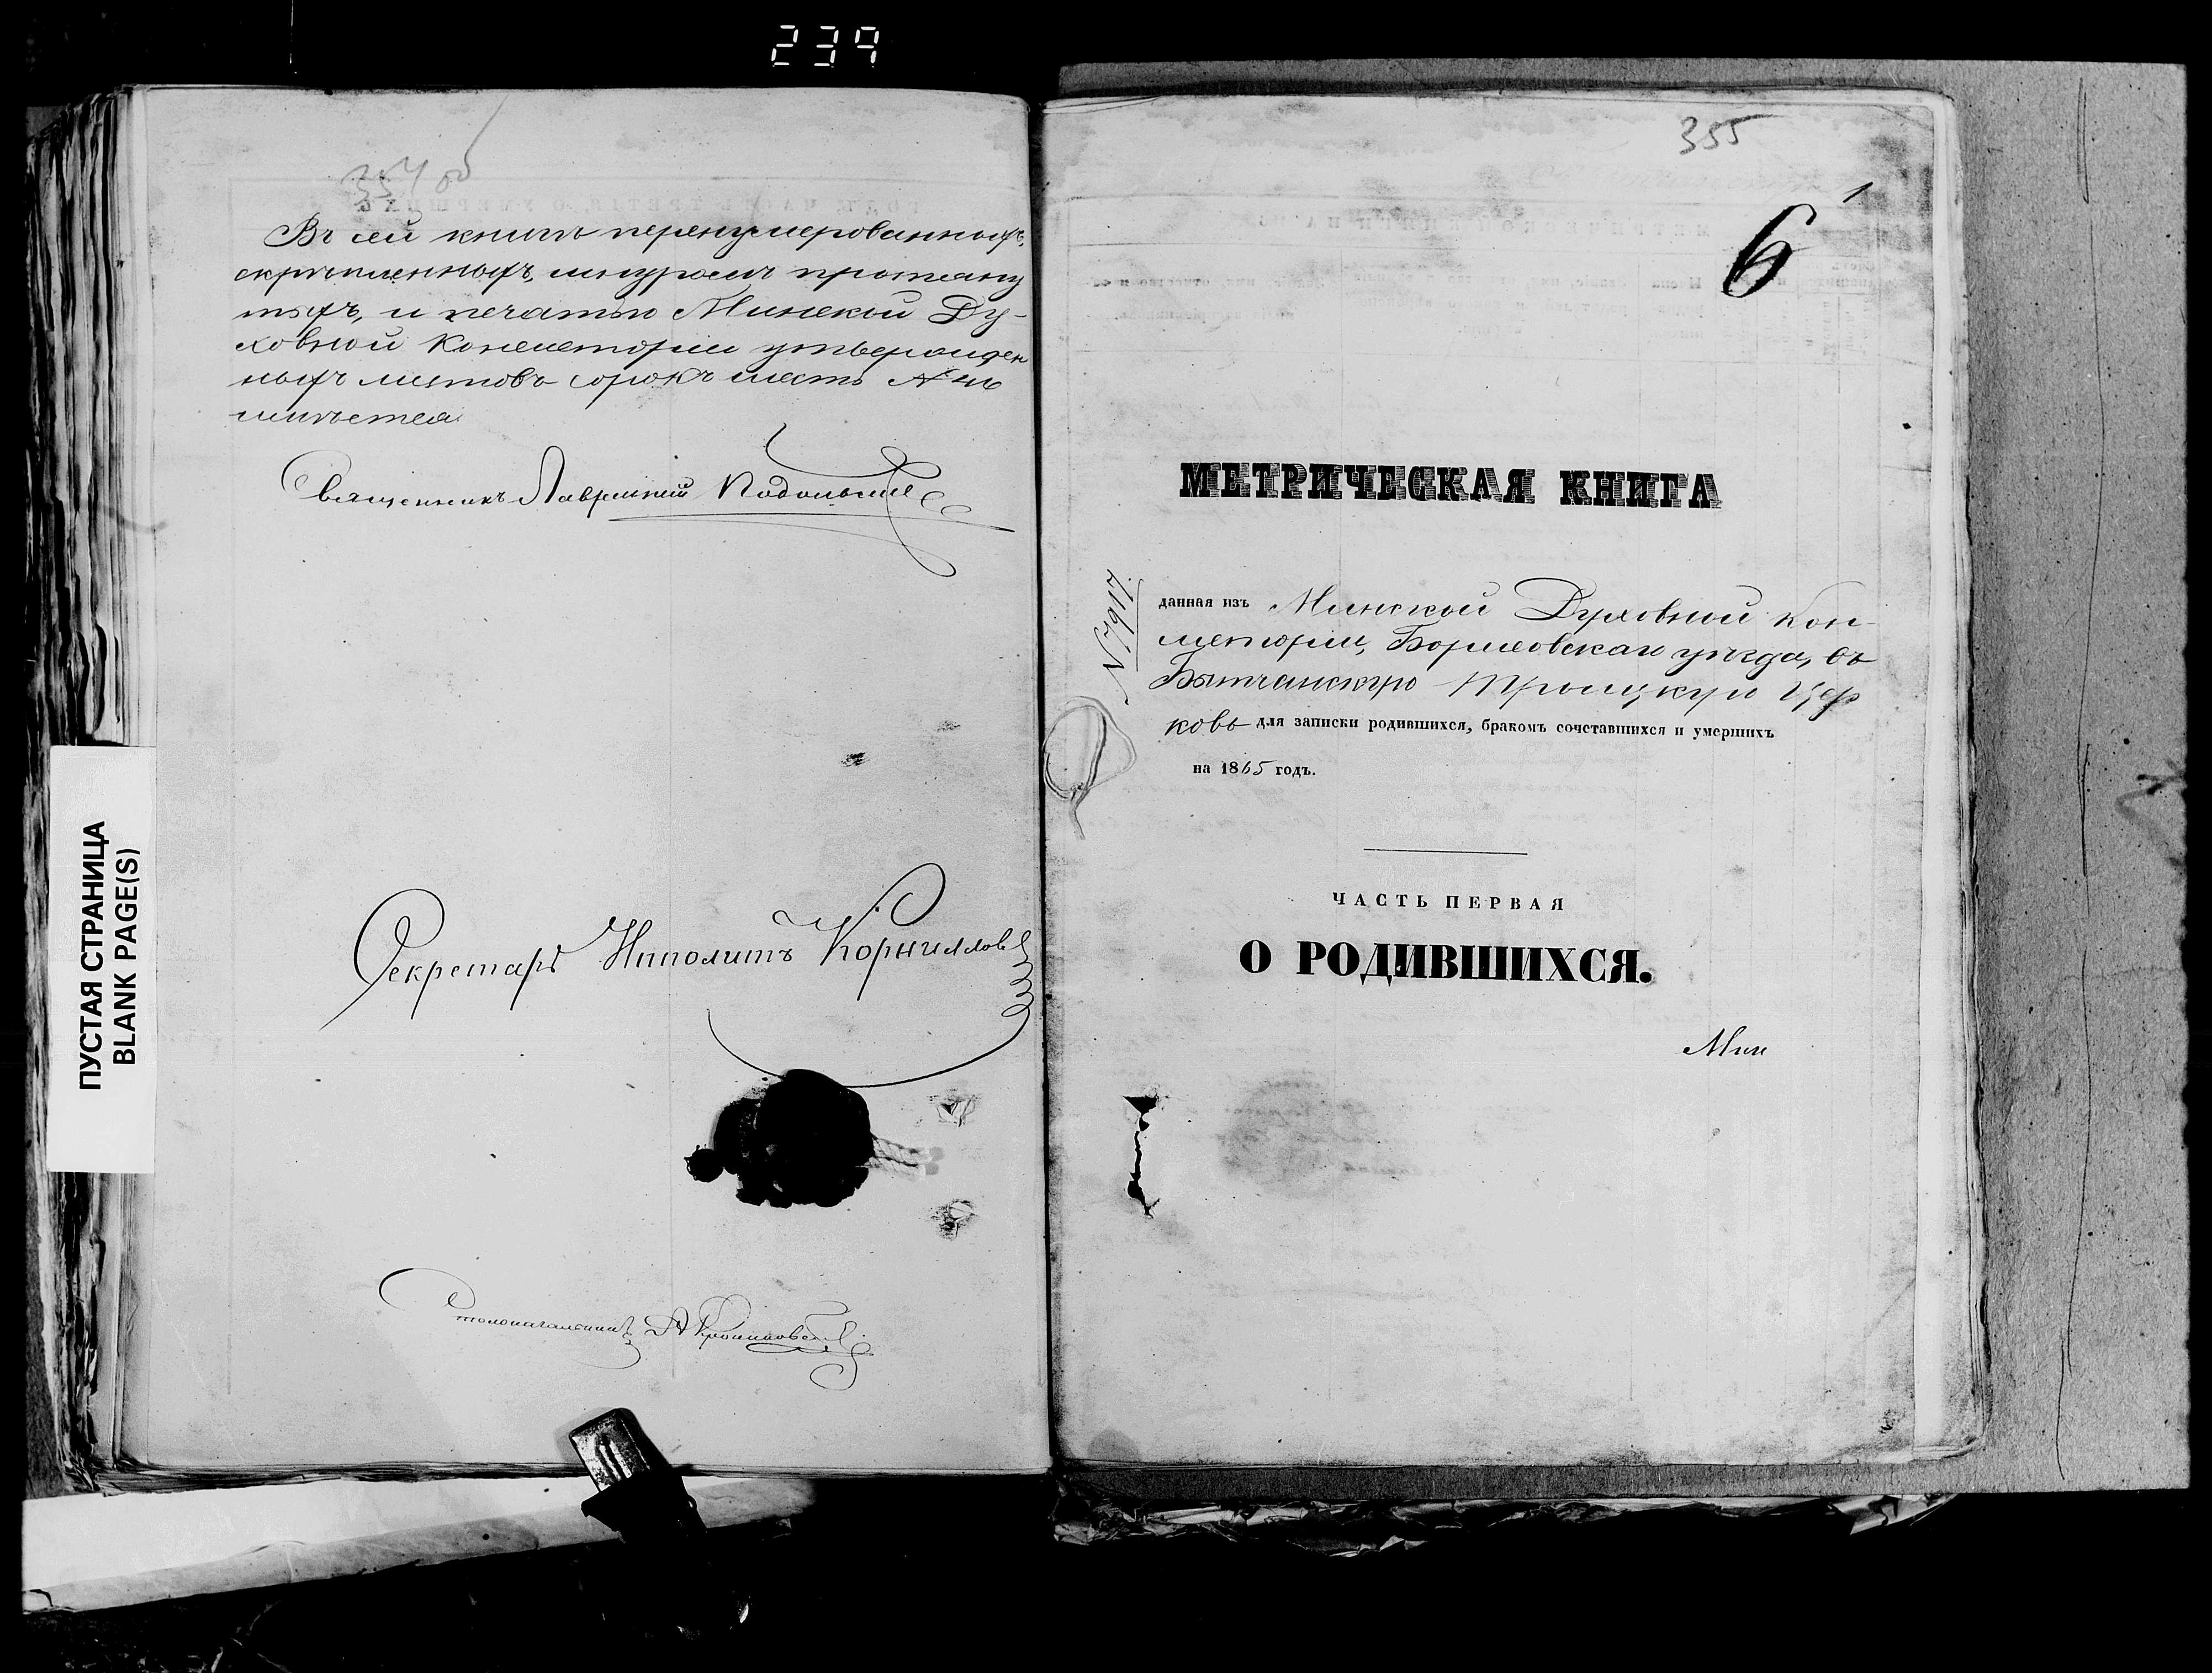 239
354 об
Въ сей книгѣ перенумерованныхъ,
скрѣпленныхъ, шнуромъ протяну
тыхъ, и печатью Минской Ду-
ховной Консисторіи утвержден
ныхъ листовъ сорокъ шесть № 46
имѣется
Священникъ Лаврентій Подольскій
Секретарь Ипполитъ Корнилловъ
Столоначальникъ А
ПУСТАЯ СТРАНИЦА
BLANK PAGE(S)
355
1
6
МЕТРИЧЕСКАЯ КНИГА
№ 7917.
данная изъ Минской Духовной Кон-
систоріи, Борисовскаго уѣзда, въ
Бытчанскую Троицкую Цер
ковь для записки родившихся, бракомъ сочетавшихся и умершихъ
на 1865 годъ.
ЧАСТЬ ПЕРВАЯ
О РОДИВШИХСЯ.
Мин